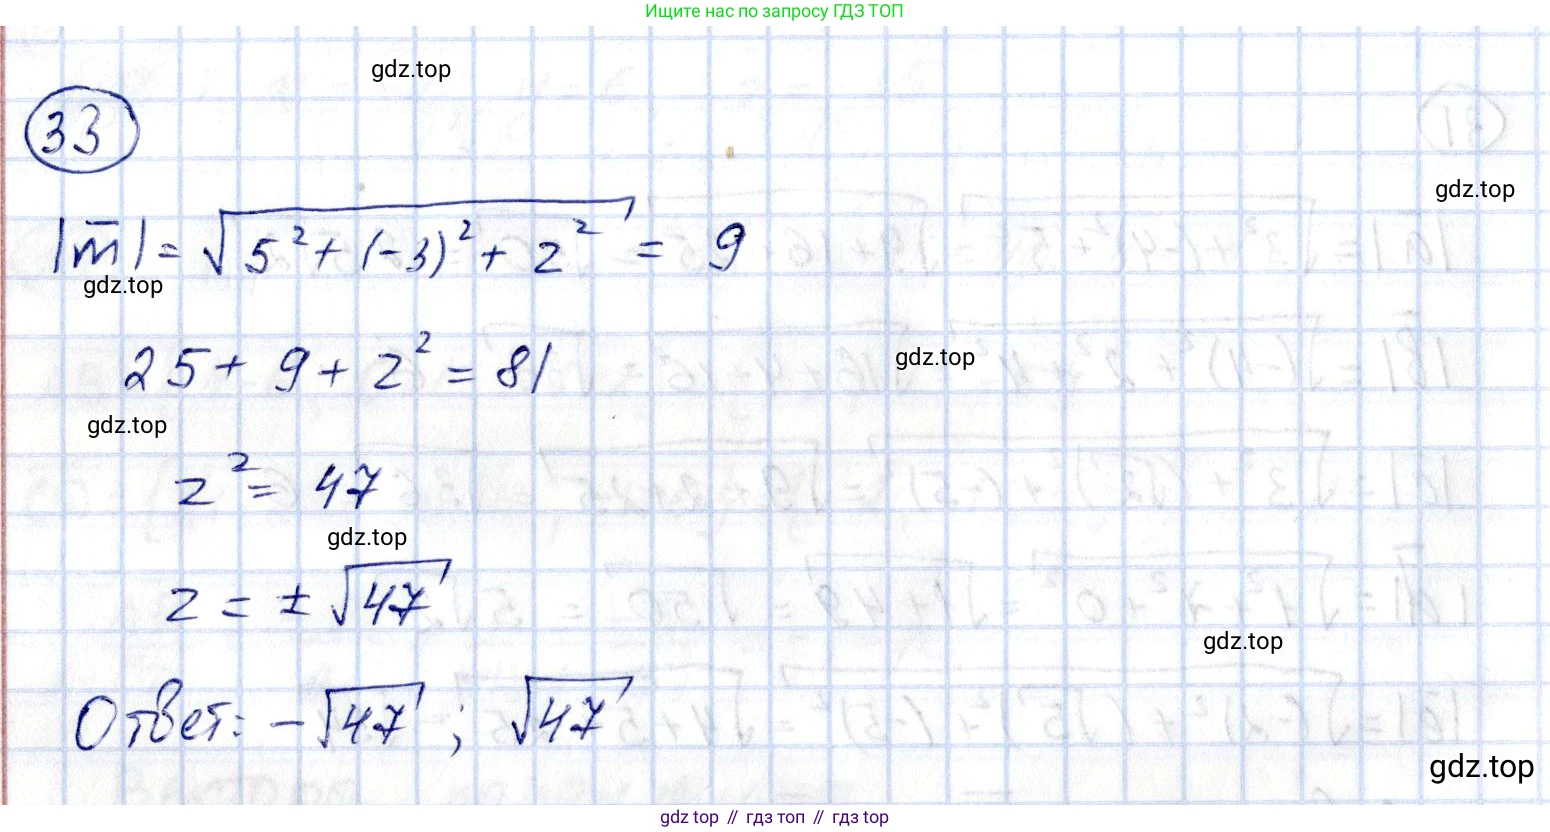 Ищите нас по запросу ГДЗ ТОП
gdz.top
33
gdz.top
|m̅| = √(5² + (-3)² + z²) = 9
gdz.top
25 + 9 + z² = 81
gdz.top
gdz.top
z² = 47
gdz.top
z = ± √47
gdz.top
Ответ: -√47 ; √47
gdz.top
gdz top // гдз топ // гдз top